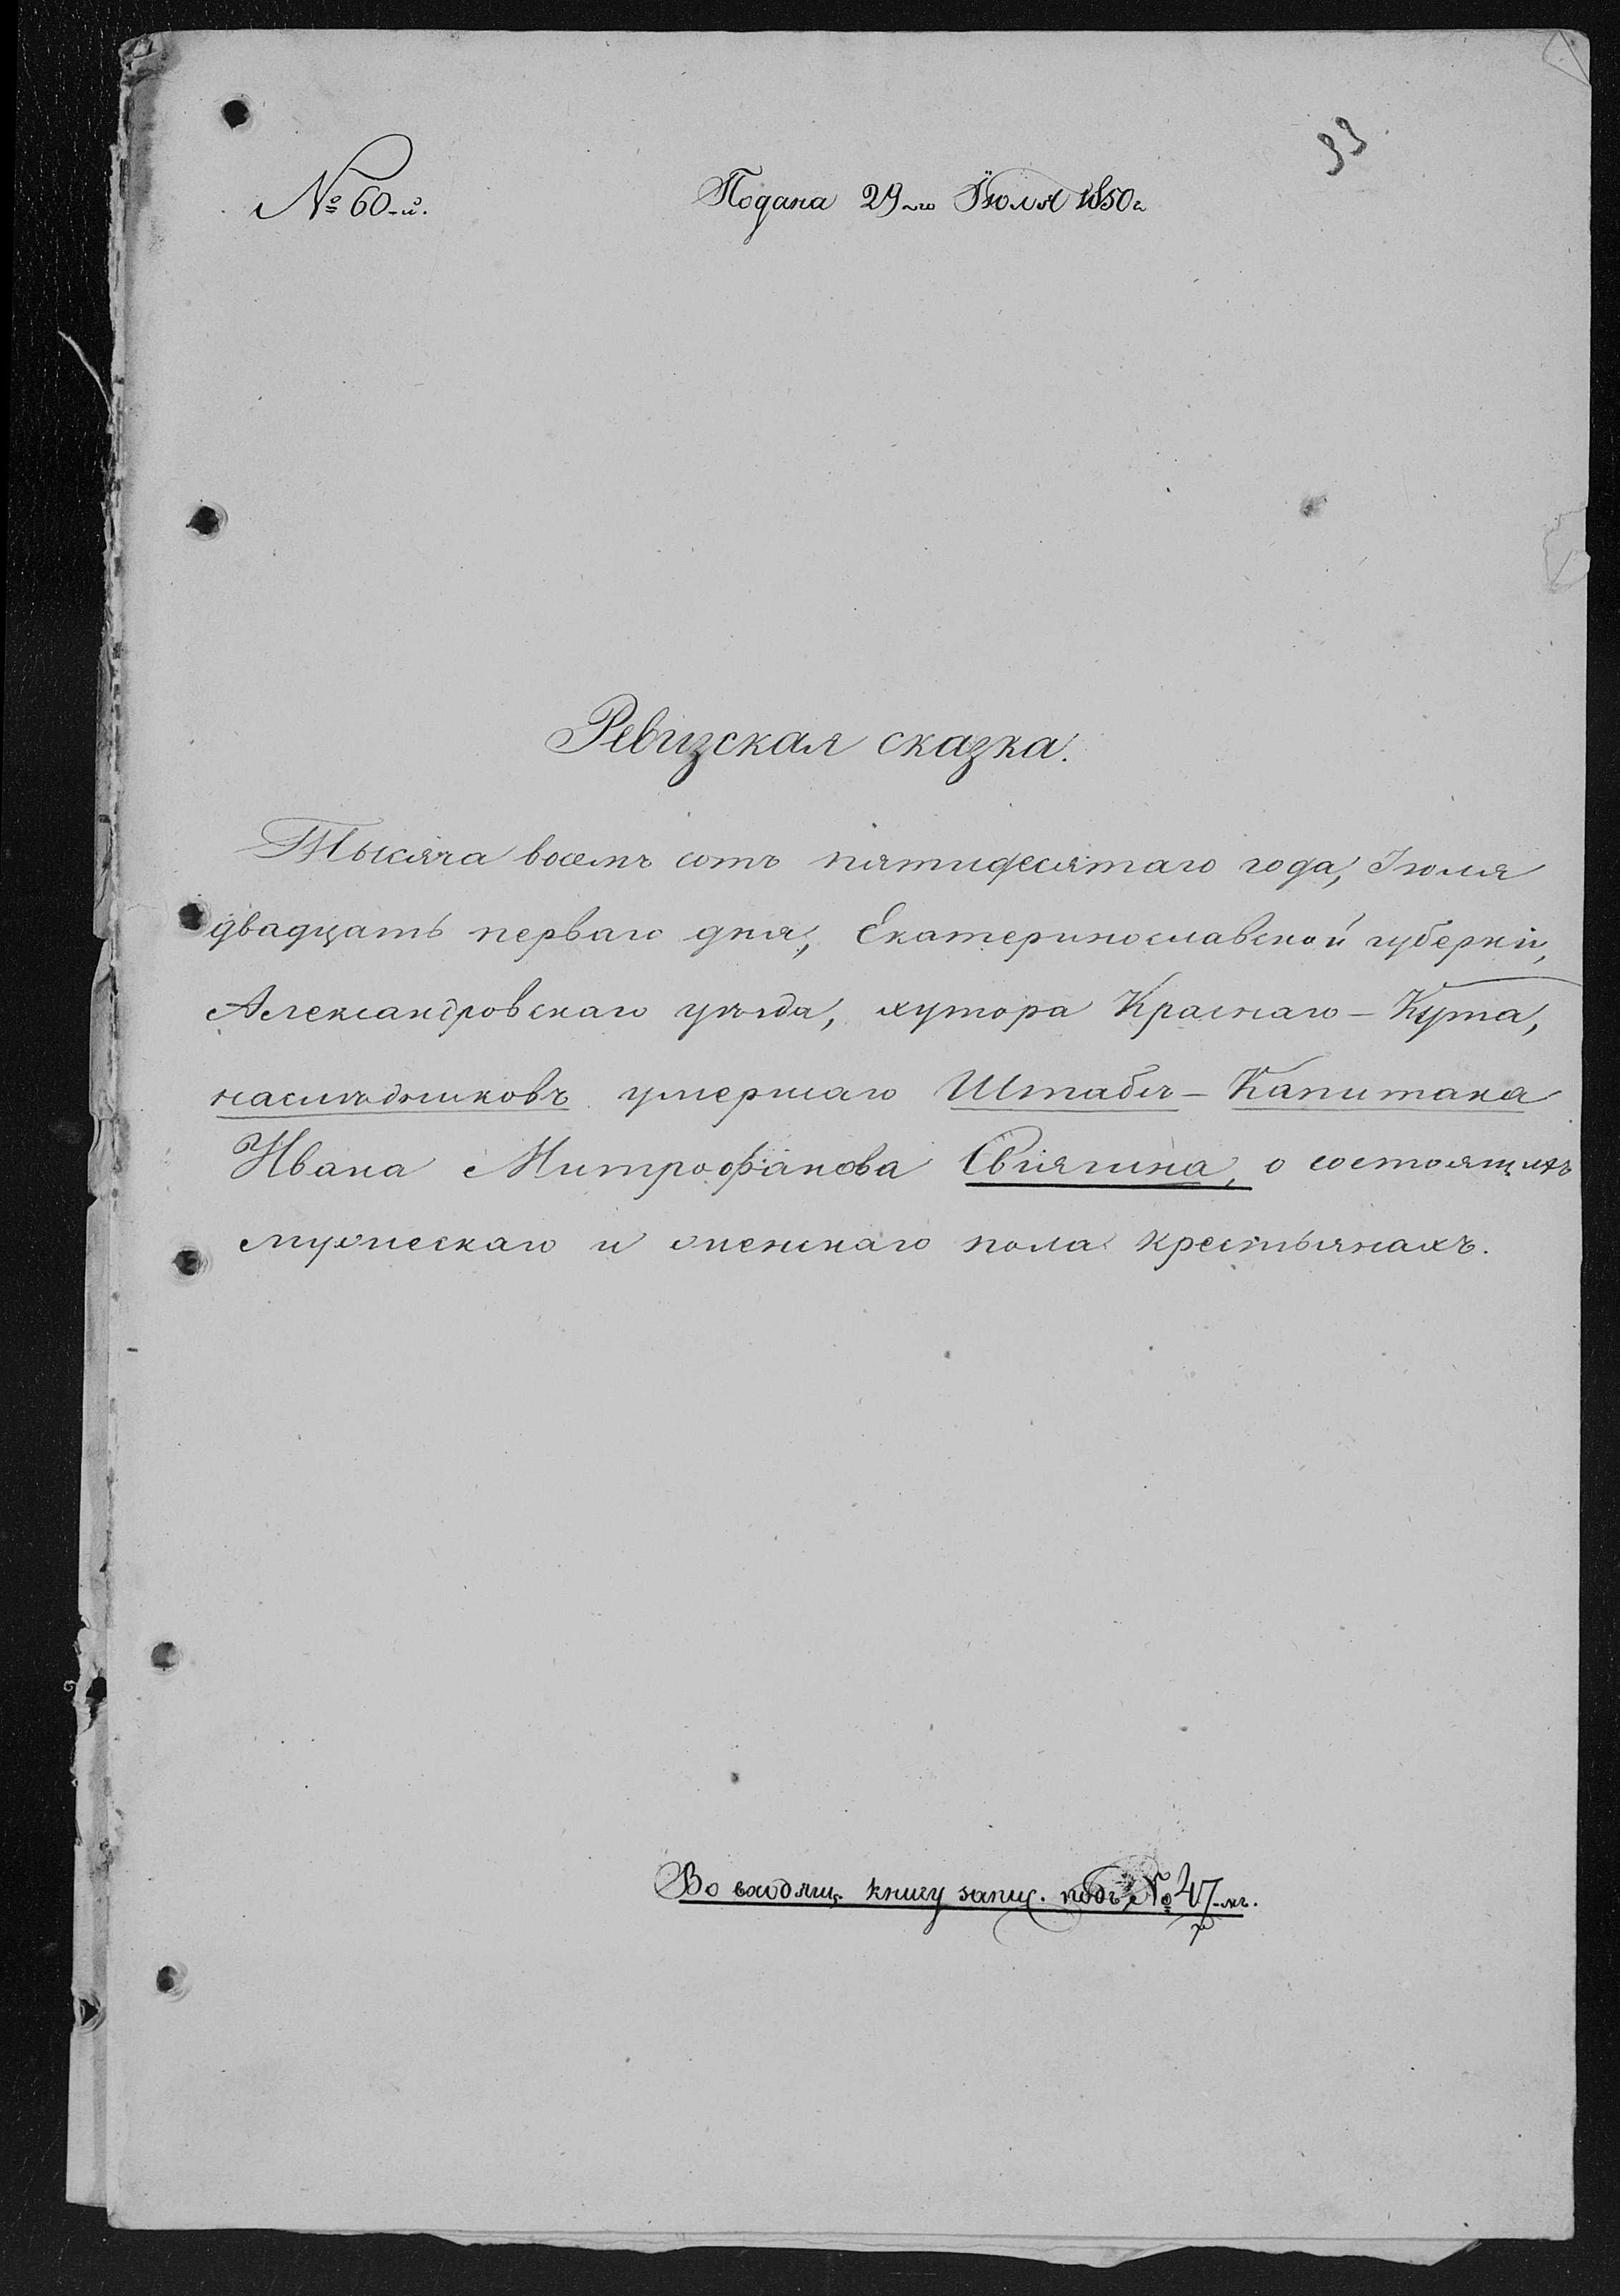 33
№ 60-й.
Подана 29-го Іюля 1850 г
Ревизская сказка.
Тысяча восемъ сотъ пятидесятаго года, Іюля
двадцать перваго дня, Екатеринославской губерніи,
Александровскаго уѣзда, хутора Краснаго-Кута,
наслѣдниковъ умершаго Штабъ-Капитана
Ивана Митрофанова Свіягина, о состоящихъ
мужескаго и женскаго пола крестьянахъ.
Во входящ. книгу запис. подъ № 47-мъ.